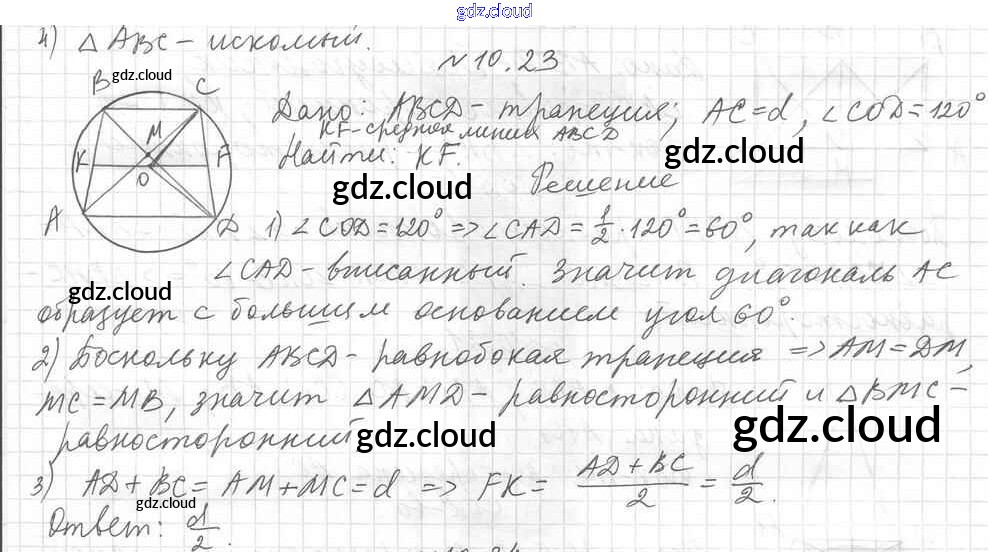 gdz.cloud
4) △ABC – искомый.
№10.23
gdz.cloud
B C
M
K F
O
A D
Дано: ABCD – трапеция; AC = d, ∠COD = 120°
KF – средняя линия ABCD
Найти: KF.
gdz.cloud
gdz.cloud
Решение
1) ∠COD = 120° => ∠CAD = 1/2 · 120° = 60°, так как
∠CAD – вписанный. Значит диагональ AC
gdz.cloud
образует с большим основанием угол 60°.
2) Поскольку ABCD – равнобокая трапеция => AM = DM,
MC = MB, значит △AMD – равносторонний и △BMC –
равносторонний
gdz.cloud
gdz.cloud
3) AD + BC = AM + MC = d => FK = (AD + BC)/2 = d/2.
gdz.cloud
Ответ: d/2.